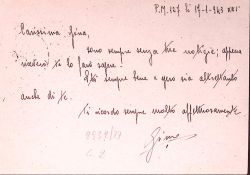 P.M. 127 li 17-1-943 XXI
Carissima Gina,
sono sempre senza tue notizie; appena
riceverò te lo farò sapere.
Sto sempre bene e spero sia altrettanto
anche di te.
Ti ricordo sempre molto affettuosamente